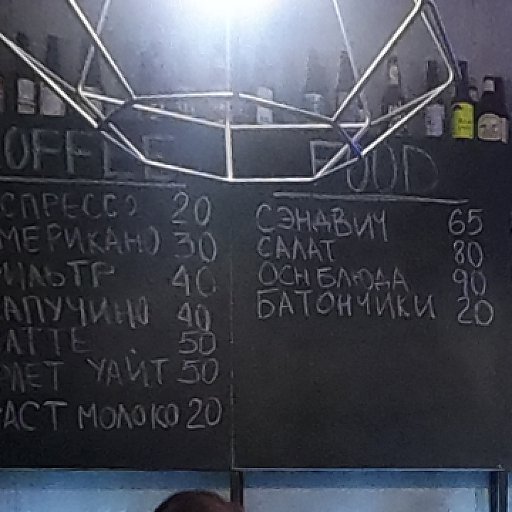 OFFEE
СПРЕССО 20
МЕРИКАНО 30
ИЛЬТР 40
АПУЧИНО 40
АТТЕ 50
ЛЕТ УАЙТ 50
АСТ МОЛОКО 20
FOOD
СЭНДВИЧ 65
САЛАТ 80
ОСН БЛЮДА 90
БАТОНЧИКИ 20